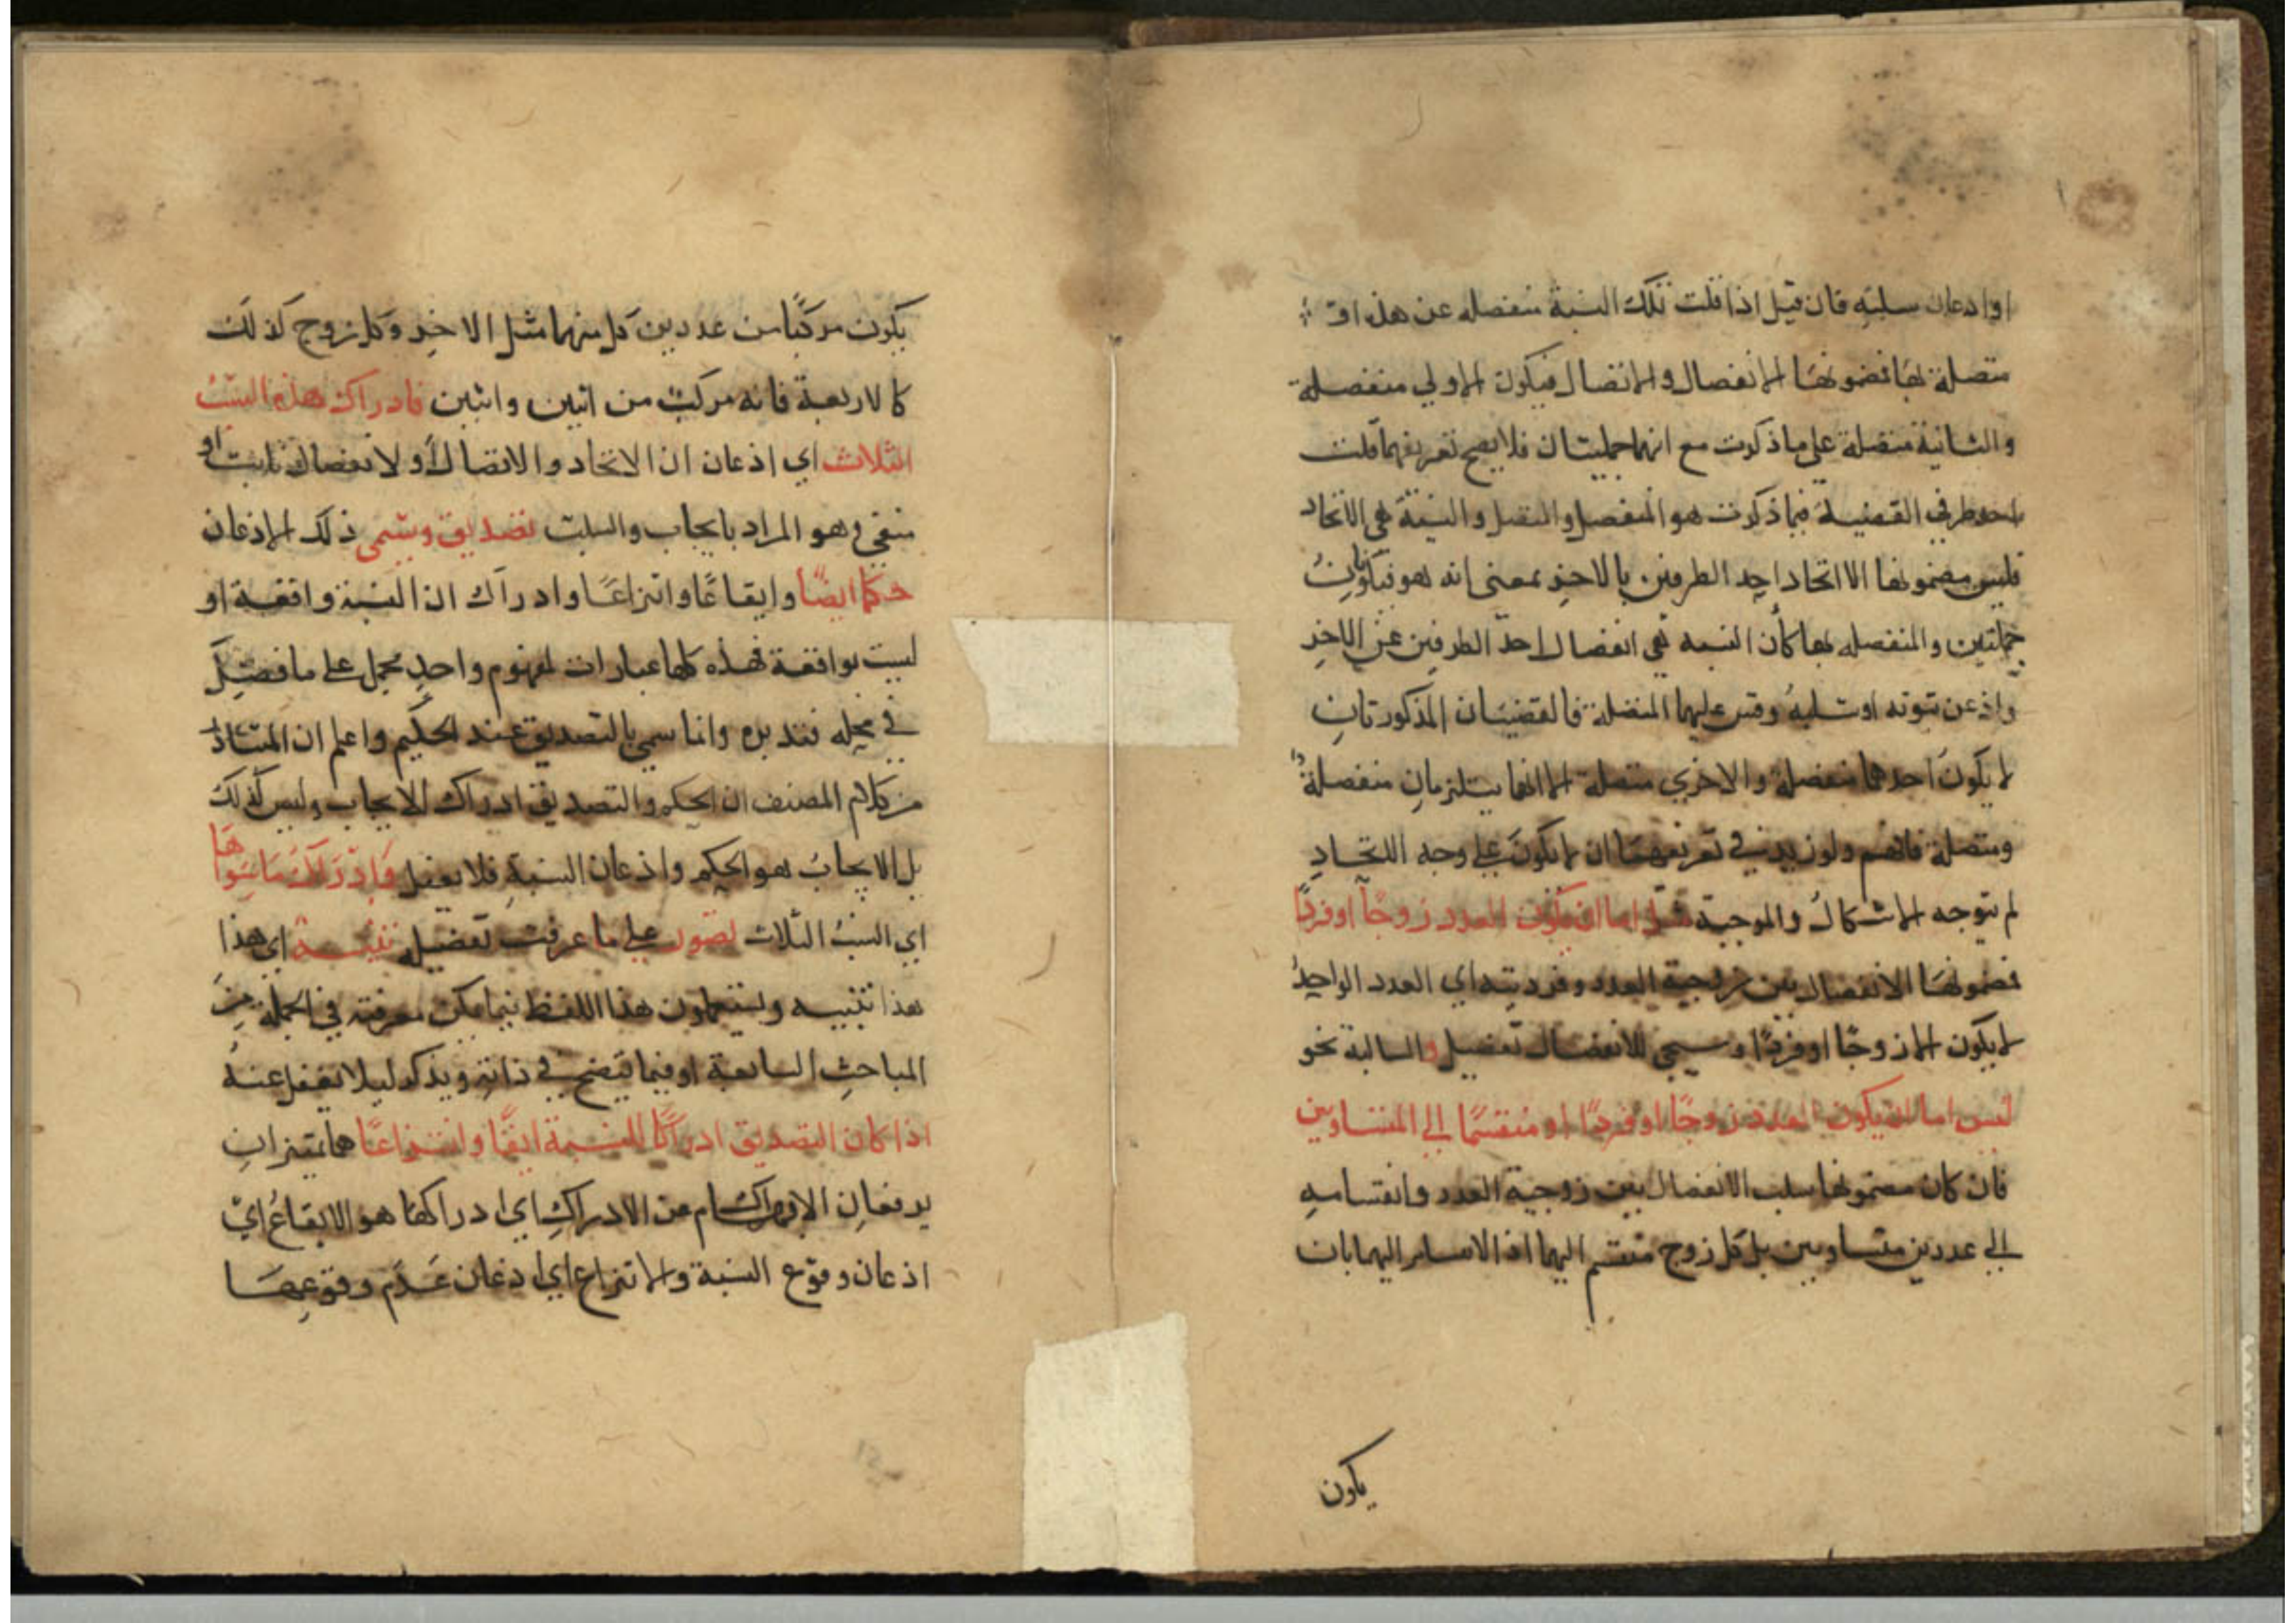 او اذعان سلبه فان قيل اذا قلت تلك النسبة منفصله عن هذه او
متصلة بها فمضمونها الانفصال والاتصال فيكون الاولي منفصلة
والثانية متصلة علي ما ذكرت مع انهما حمليتان فلا يصح تعريفهما قلت
احد طرفي القضية فيما ذكرت هو المنفصل والمتصل والنسبة هي الاتحاد
فليس مضمونها الا اتحاد احد الطرفين بالاخر بمعنى انه هو فيكونان
حمليتين والمنفصله ما كان النسبه هي انفصال احد الطرفين عن الاخر
واذعن ثبوته او سلبه وقس عليها المتصلة فالقضيتان المذكورتان
لا يكون احدهما منفصلة والاخري متصلة الا انهما يستلزمان منفصلة
ومتصلة فافهم ولو زيد في تعريفهما ان لا يكون علي وجه الاتحاد
لم يتوجه الاشكال والموجبة مثل اما ان يكون العدد زوجًا او فردًا
فمضمونها الانفصال بين زوجية العدد وفرديته اي العدد الواحد
لا يكون الا زوجًا او فردًا وسيجي للانفصال تفصيل والسالبة نحو
ليس اما ان يكون العدد زوجًا او فردًا او منقسمًا الي المتساويين
فان كان مضمونها سلب الانفصال بين زوجية العدد وانقسامه
الي عددين متساويين بل كل زوج منقسم اليهما اذ اليهما بان
يكون
يكون مركبًا من عددين كل منهما مثل الاخر وكل زوج كذلك
كالاربعة فانه مركب من اثنين واثنين فادراك هذه النسب
الثلاث اي اذعان ان الاتحاد والاتصال او لانفصال ثابت او
منفي وهو المراد بايجاب والسلب تصديق ويسمى ذلك الاذعان
حكما ايضًا وايقاعًا وانتزاعًا وادراك ان النسبة واقعة او
ليست بواقعة فهذه كلها عبارات لمفهوم واحد مجمل علي ما فصل
في محله فتدبره وانما سمي بالتصديق عند الحكيم واعلم ان المتبادر
من كلام المصنف ان الحكم والتصديق ادراك الايجاب وليس كذلك
بل الايجاب هو الحكم واذعان النسبة فلا يغفل وادراك ما سواها
اي النسب الثلاث تصور علي ما عرفت تفصيله تنبيه اي هذا
هذا تنبيه ويستعملون هذا اللفظ فيما يمكن معرفته في الجملة من
المباحث السابقة او فيما يتضح في ذاته ويذكر ليلا يغفل عنه
اذا كان التصديق ادراكًا للنسبة ايقاعًا وانتزاعًا هما تميزان
يرفعان الابهام عن الادراك اي ادراكها هو الايقاع اي
اذعان وقوع النسبة والانتزاع اي اذعان عدم وقوعها